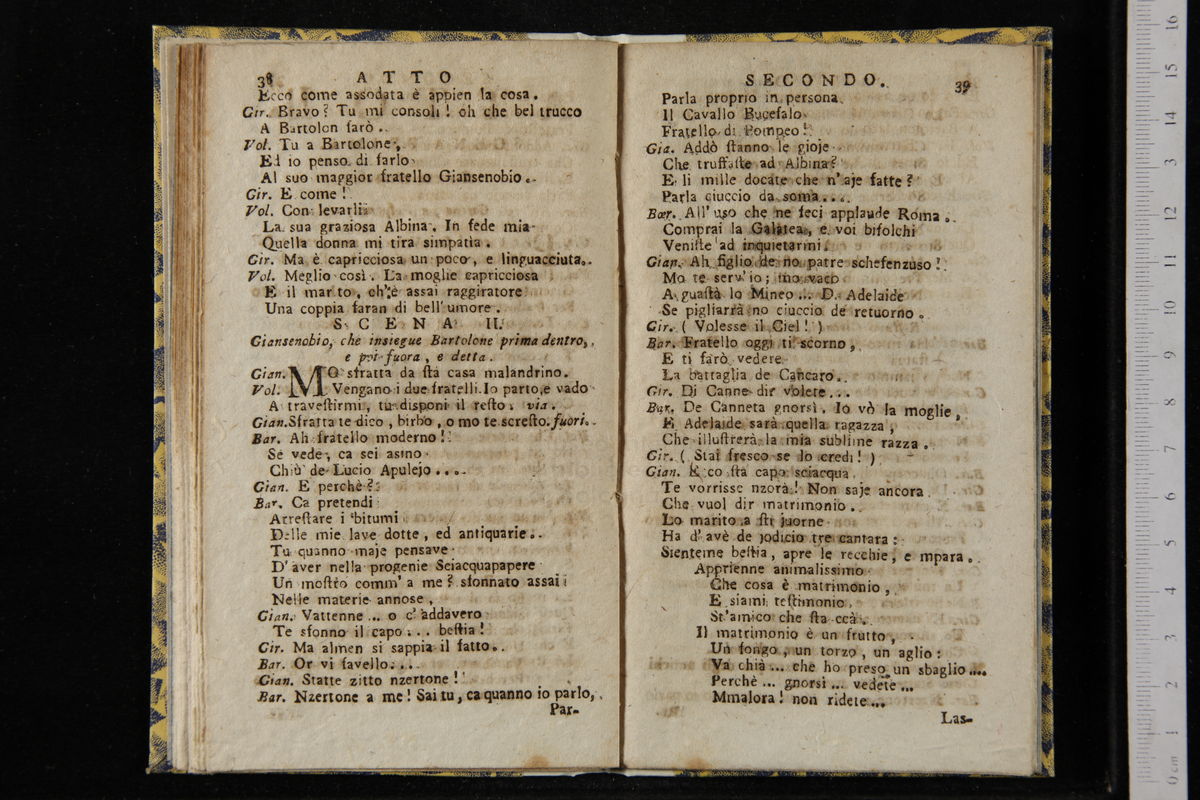 38 ATTO
Ecco come assodata è appien la cosa.
Gir. Bravo? Tu mi consoli! oh che bel trucco
A Bartolon farò..
Vol. Tu a Bartolone,
Ed io penso di farlo
Al suo maggior fratello Giansenobio.
Gir. E come!
Vol. Con levarli
La sua graziosa Albina. In fede mia
Quella donna mi tira simpatia.
Gir. Ma è capricciosa un poco, e linguacciuta.
Vol. Meglio così. La moglie capricciosa
E il marito, ch'è assai raggiratore
Una coppia faran di bell' umore.
SCENA II.
Giansenobio, che insiegue Bartolone prima dentro,
e poi fuora, e detta.
Gian. MO sfratta da sta casa malandrino.
Vol. Vengano i due fratelli. Io parto, e vado
A travestirmi, tu disponi il resto. via.
Gian. Sfratta te dico, birbo, o mo te scresto. fuori.
Bar. Ah fratello moderno!
Se vede, ca sei asino
Chiù de Lucio Apulejo....
Gian. E perchè?
Bar. Ca pretendi
Arrestare i bitumi
Delle mie lave dotte, ed antiquarie.
Tu quanno maje pensave
D' aver nella progenie Sciacquapapere
Un mostro comm' a me? sfonnato assai
Nelle materie annose,
Gian. Vattenne... o c' addavero
Te sfonno il capo... bestia!
Gir. Ma almen si sappia il fatto.
Bar. Or vi favello....
Gian. Statte zitto nzertone!
Bar. Nzertone a me! Sai tu, ca quanno io parlo,
Par-
SECONDO. 39
Parla proprio in persona
Il Cavallo Bucefalo
Fratello di Pompeo!
Gia. Addò stanno le gioje
Che truffaste ad Albina?
E li mille docate che n' aje fatte?
Parla ciuccio da soma....
Bar. All' uso che ne feci applaude Roma.
Comprai la Galatea, e voi bifolchi
Veniste ad inquietarmi.
Gian. Ah figlio de no patre schefenzuso!
Mo te serv' io; mo vaco
A guastà lo Mineo... D. Adelaide
Se pigliarrà no ciuccio de retuorno.
Gir. (Volesse il Ciel!)
Bar. Fratello oggi ti scorno,
E ti farò vedere
La battaglia de Cancaro.
Gir. Di Canne dir volete...
Bar. De Canneta gnorsì. Io vò la moglie,
E Adelaide sarà quella ragazza,
Che illustrerà la mia sublime razza.
Gir. (Stai fresco se lo credi!)
Gian. E co sta capo sciacqua
Te vorrisse nzorà! Non saje ancora
Che vuol dir matrimonio.
Lo marito a sti juorne
Ha d' avè de jodicio tre cantara:
Sienteme bestia, apre le recchie, e mpara.
Apprienne animalissimo
Che cosa è matrimonio,
E siami testimonio
St' amico che sta ccà.
Il matrimonio è un frutto,
Un fongo, un torzo, un aglio:
Va chià... che ho preso un sbaglio....
Perchè... gnorsì... vedete...
Mmalora! non ridete...
Las-
0 cm 1 2 3 4 5 6 7 8 9 10 11 12 13 14 15 16